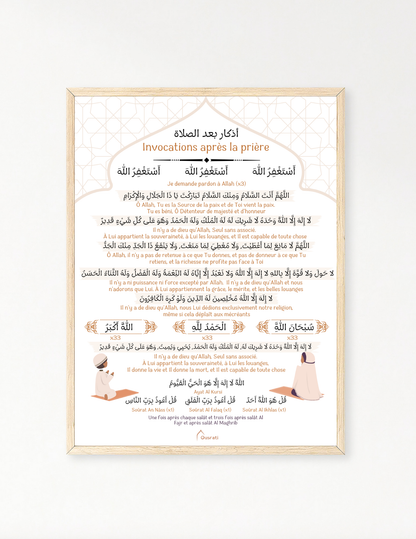 أذكار بعد الصلاة
Invocations après la prière
أَسْتَغْفِرُ اللَّه أَسْتَغْفِرُ اللَّه أَسْتَغْفِرُ اللَّه
Je demande pardon à Allah (x3)
اللَّهُمَّ أَنْتَ السَّلَامُ وَمِنْكَ السَّلَامُ تَبَارَكْتَ يَا ذَا الْجَلَالِ وَالْإِكْرَامِ
Ô Allah, Tu es la Source de la paix et de Toi vient la paix.
Tu es béni, Ô Détenteur de majesté et d'honneur
لَا إِلَهَ إِلَّا اللَّهُ وَحْدَهُ لَا شَرِيكَ لَهُ، لَهُ الْمُلْكُ وَلَهُ الْحَمْدُ، وَهُوَ عَلَى كُلِّ شَيْءٍ قَدِيرٌ
Il n'y a de dieu qu'Allah, Seul sans associé.
À Lui appartient la souveraineté, à Lui les louanges, et Il est capable de toute chose
اللَّهُمَّ لَا مَانِعَ لِمَا أَعْطَيْتَ، وَلَا مُعْطِيَ لِمَا مَنَعْتَ، وَلَا يَنْفَعُ ذَا الْجَدِّ مِنْكَ الْجَدُّ
Ô Allah, il n'y a pas de retenue à ce que Tu donnes, et pas de donneur à ce que Tu
retiens, et la richesse ne profite pas face à Toi
لَا حَوْلَ وَلَا قُوَّةَ إِلَّا بِاللَّهِ لَا إِلَهَ إِلَّا اللَّهُ وَلَا نَعْبُدُ إِلَّا إِيَّاهُ لَهُ النِّعْمَةُ وَلَهُ الْفَضْلُ وَلَهُ الثَّنَاءُ الْحَسَنُ
Il n'y a ni puissance ni force excepté par Allah. Il n'y a de dieu qu'Allah et nous
n'adorons que Lui. À Lui appartiennent la grâce, le mérite, et les belles louanges
لَا إِلَهَ إِلَّا اللَّهُ مُخْلِصِينَ لَهُ الدِّينَ وَلَوْ كَرِهَ الْكَافِرُونَ
Il n'y a de dieu qu'Allah, nous Lui dédions exclusivement notre religion,
même si cela déplaît aux mécréants
سُبْحَانَ اللَّهِ الْحَمْدُ لِلَّهِ اللَّهُ أَكْبَرُ
x33 x33 x33
لَا إِلَهَ إِلَّا اللَّهُ وَحْدَهُ لَا شَرِيكَ لَهُ، لَهُ الْمُلْكُ وَلَهُ الْحَمْدُ، يُحْيِي وَيُمِيتُ، وَهُوَ عَلَى كُلِّ شَيْءٍ قَدِيرٌ
Il n'y a de dieu qu'Allah, Seul sans associé.
À Lui appartient la souveraineté, à Lui les louanges,
Il donne la vie et Il donne la mort, et Il est capable de toute chose
اللَّهُ لَا إِلَهَ إِلَّا هُوَ الْحَيُّ الْقَيُّومُ
Ayat Al Kursi
قُلْ هُوَ اللَّهُ أَحَدٌ قُلْ أَعُوذُ بِرَبِّ الْفَلَقِ قُلْ أَعُوذُ بِرَبِّ النَّاسِ
Sourat An Nâss (x1) Sourât Al Falaq (x1) Sourât Al Ikhlas (x1)
Une fois après chaque salât et trois fois après salât Al
Fajr et après salât Al Maghrib